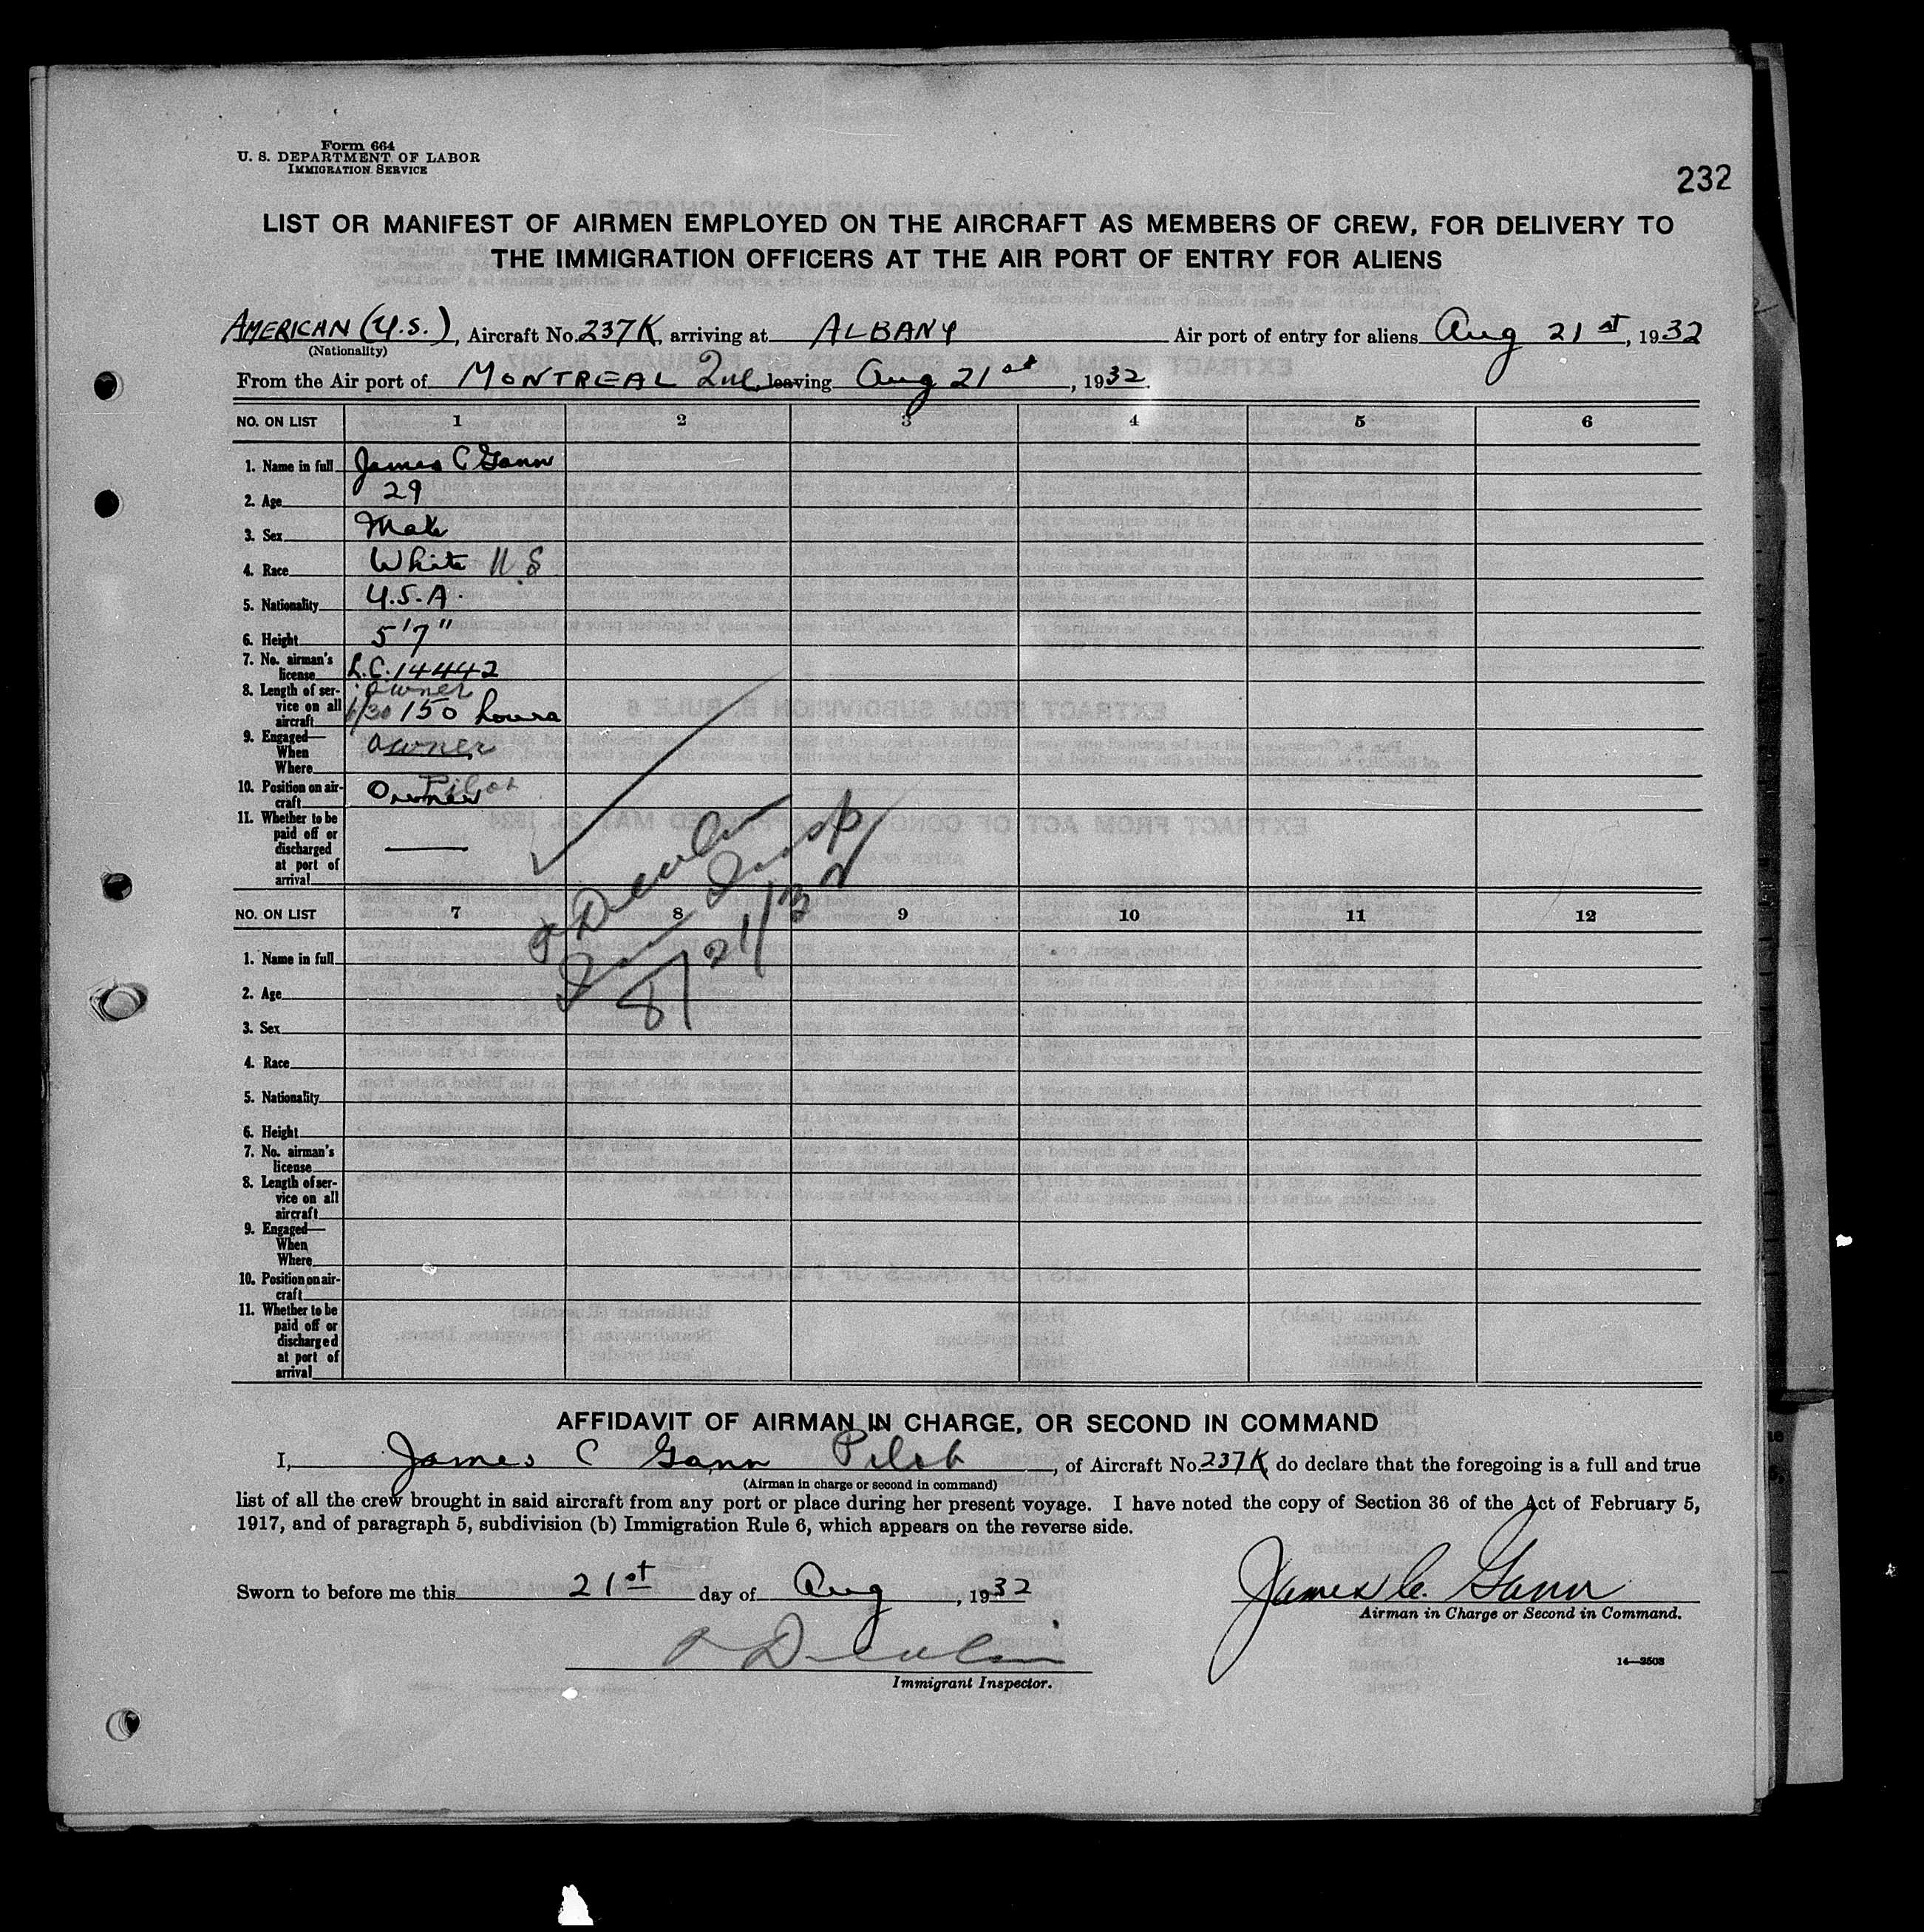 Form 664
U. S. DEPARTMENT OF LABOR
IMMIGRATION SERVICE
232
LIST OR MANIFEST OF AIRMEN EMPLOYED ON THE AIRCRAFT AS MEMBERS OF CREW, FOR DELIVERY TO
THE IMMIGRATION OFFICERS AT THE AIR PORT OF ENTRY FOR ALIENS
AMERICAN (U.S.), Aircraft No. 237K, arriving at ALBANY Air port of entry for aliens Aug 21st, 1932
(Nationality)
From the Air port of MONTREAL Que, leaving Aug 21st, 1932.
NO. ON LIST 1 2 3 4 5 6
1. Name in full James C Gann
2. Age 29
3. Sex Male
4. Race White U.S
5. Nationality U.S.A.
6. Height 5'7"
7. No. airman's
license L.C. 14442
8. Length of ser- owner
vice on all
aircraft 6/30 150 hours
9. Engaged— owner
When
Where
10. Position on air- Pilot
craft Owner
11. Whether to be
paid off or
discharged
at port of
arrival
Devlin
Imm Insp
8/21/32
NO. ON LIST 7 8 9 10 11 12
1. Name in full
2. Age
3. Sex
4. Race
5. Nationality
6. Height
7. No. airman's
license
8. Length of ser-
vice on all
aircraft
9. Engaged—
When
Where
10. Position on air-
craft
11. Whether to be
paid off or
discharged
at port of
arrival
AFFIDAVIT OF AIRMAN IN CHARGE, OR SECOND IN COMMAND
I, James C Gann Pilot, of Aircraft No. 237K do declare that the foregoing is a full and true
(Airman in charge or second in command)
list of all the crew brought in said aircraft from any port or place during her present voyage. I have noted the copy of Section 36 of the Act of February 5,
1917, and of paragraph 5, subdivision (b) Immigration Rule 6, which appears on the reverse side.
Sworn to before me this 21st day of Aug, 1932
James C. Gann
Airman in Charge or Second in Command.
Devlin
Immigrant Inspector.
14—2503